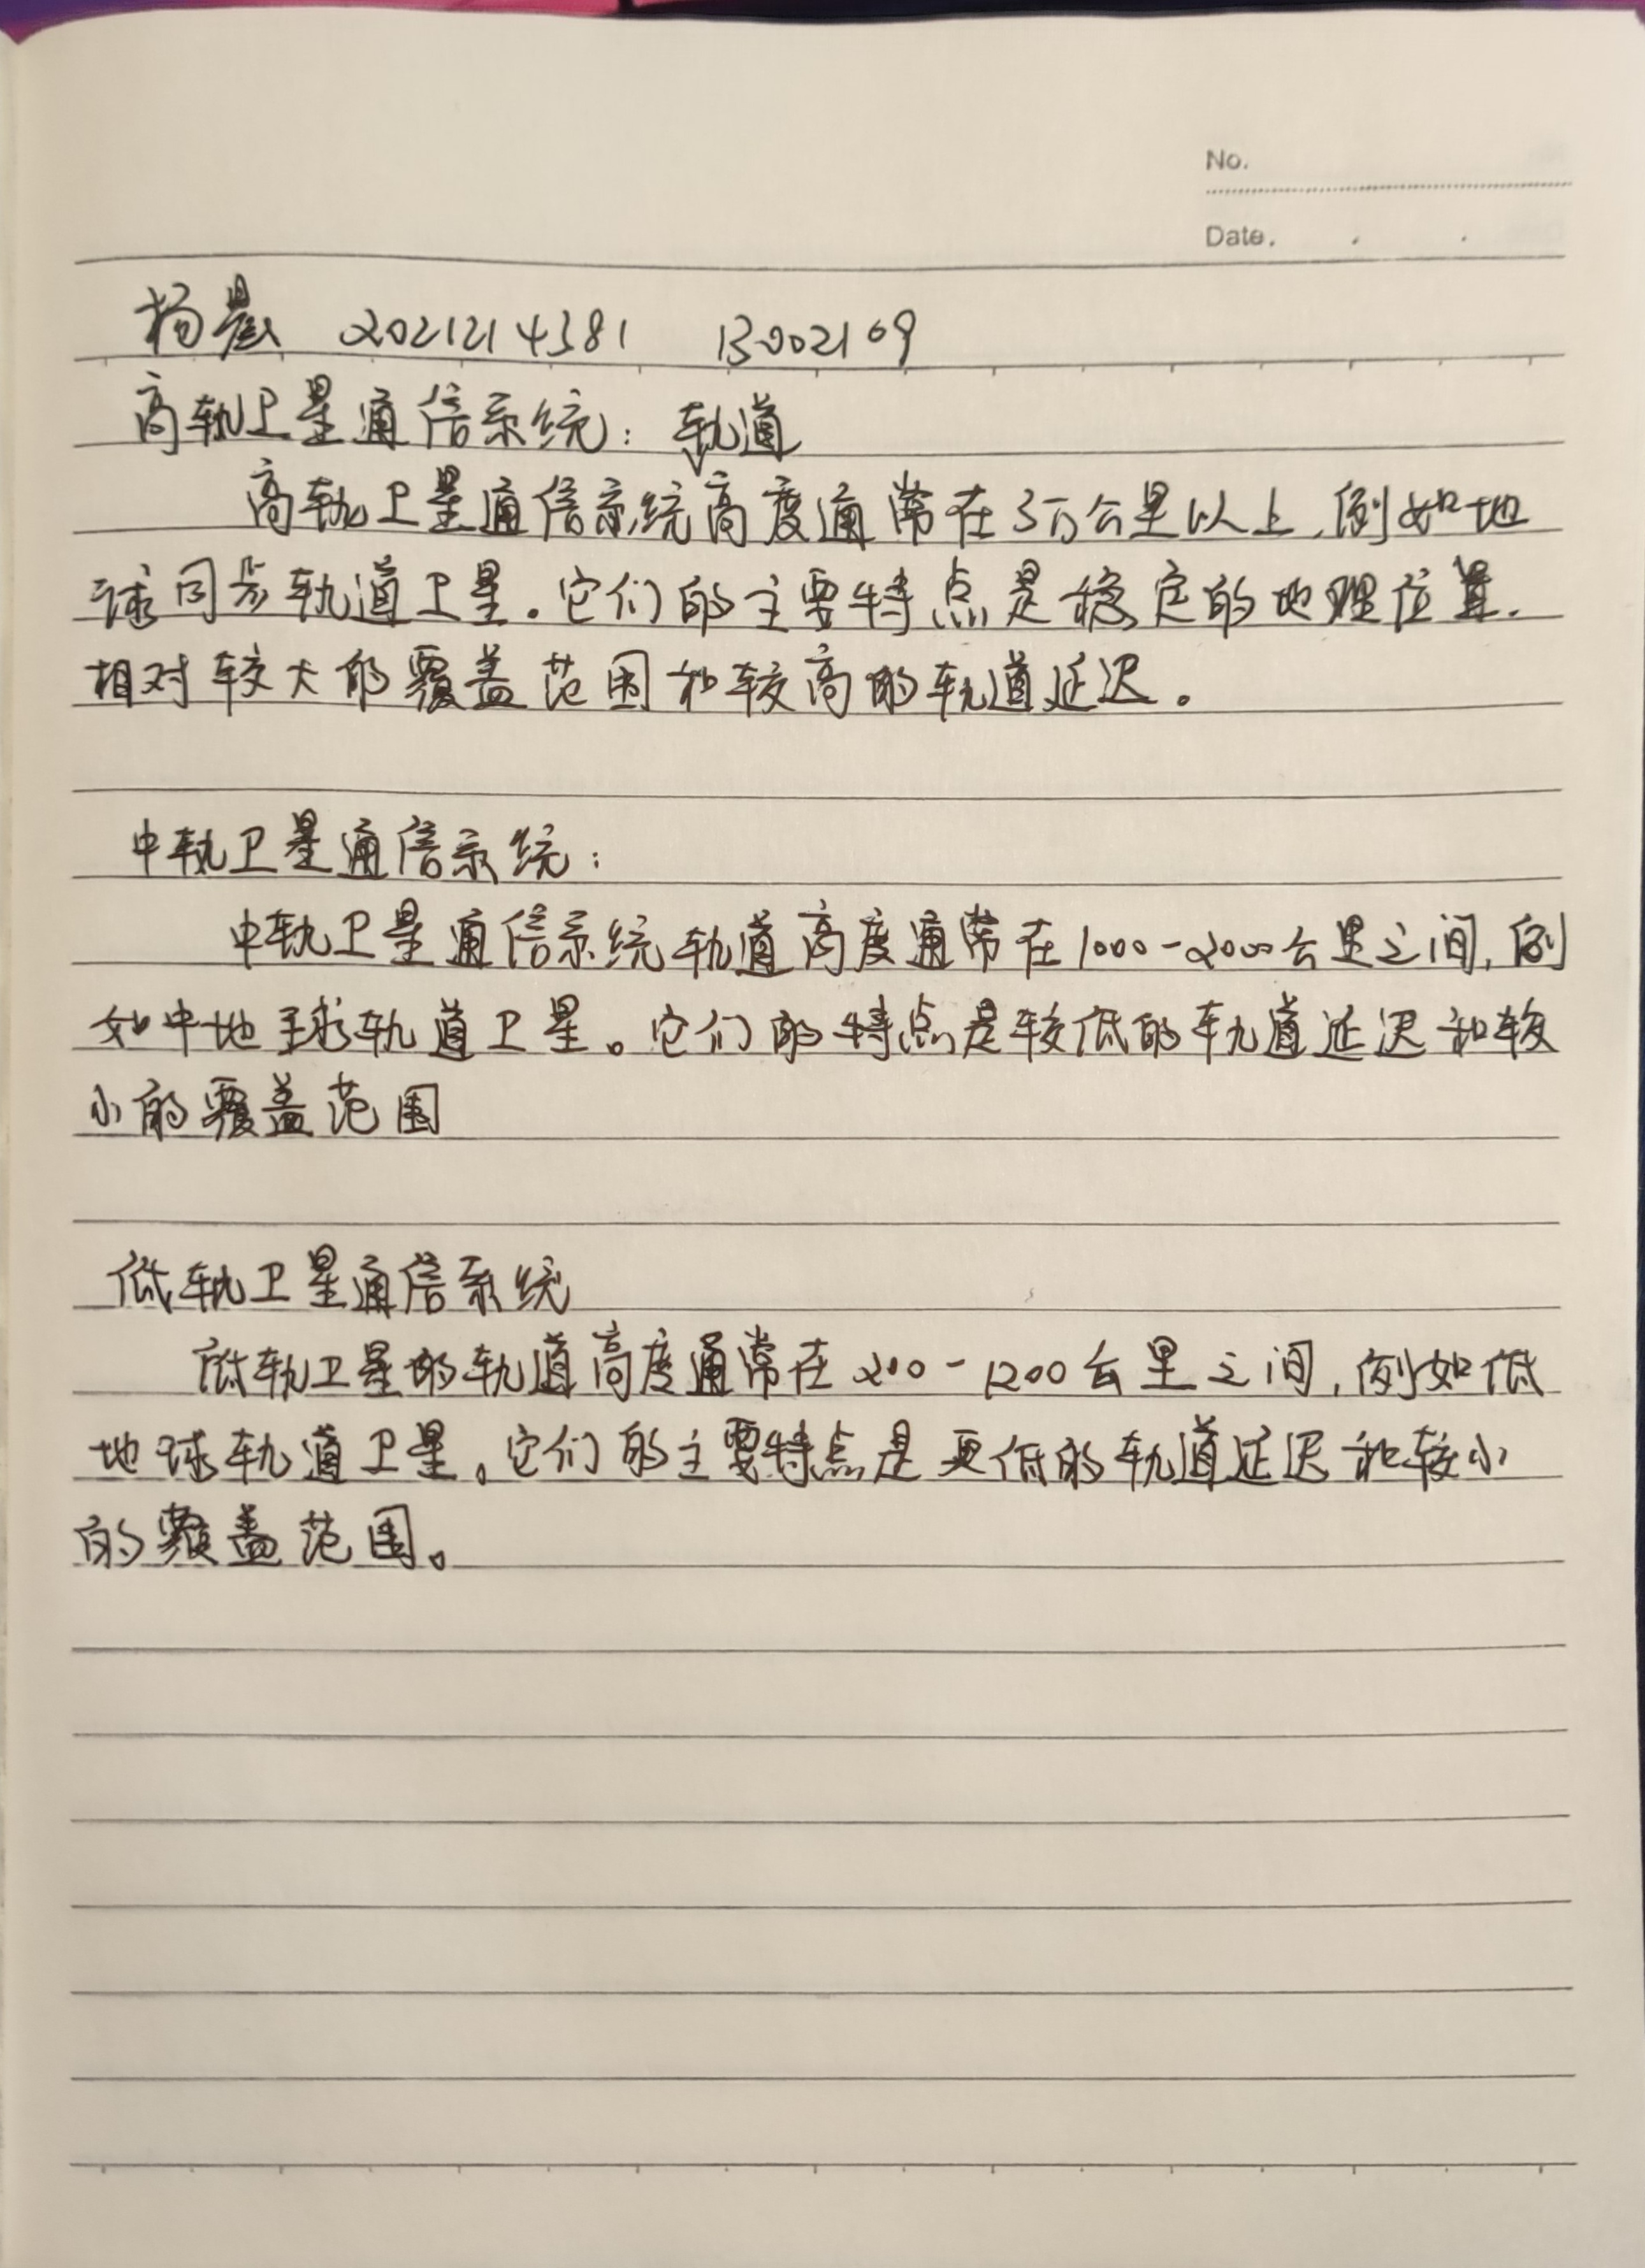 No.
Date.
杨晨 2021214381 13002109
高轨卫星通信系统：轨道
高轨卫星通信系统高度通常在3万公里以上，例如地
球同步轨道卫星。它们的主要特点是稳定的地理位置，
相对较大的覆盖范围和较高的轨道延迟。
中轨卫星通信系统：
中轨卫星通信系统轨道高度通常在1000-2000公里之间，例
如中地球轨道卫星。它们的特点是较低的轨道延迟和较
小的覆盖范围
低轨卫星通信系统
低轨卫星的轨道高度通常在200-1200公里之间，例如低
地球轨道卫星。它们的主要特点是更低的轨道延迟和较小
的覆盖范围。